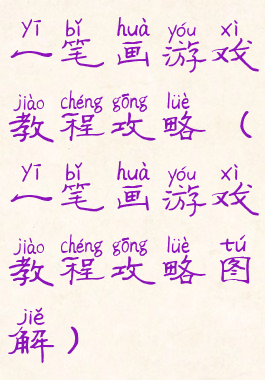 yī bǐ huà yóu xì
一笔画游戏
jiào chéng gōng lüè
教程攻略（
yī bǐ huà yóu xì
一笔画游戏
jiào chéng gōng lüè tú
教程攻略图
jiě
解）